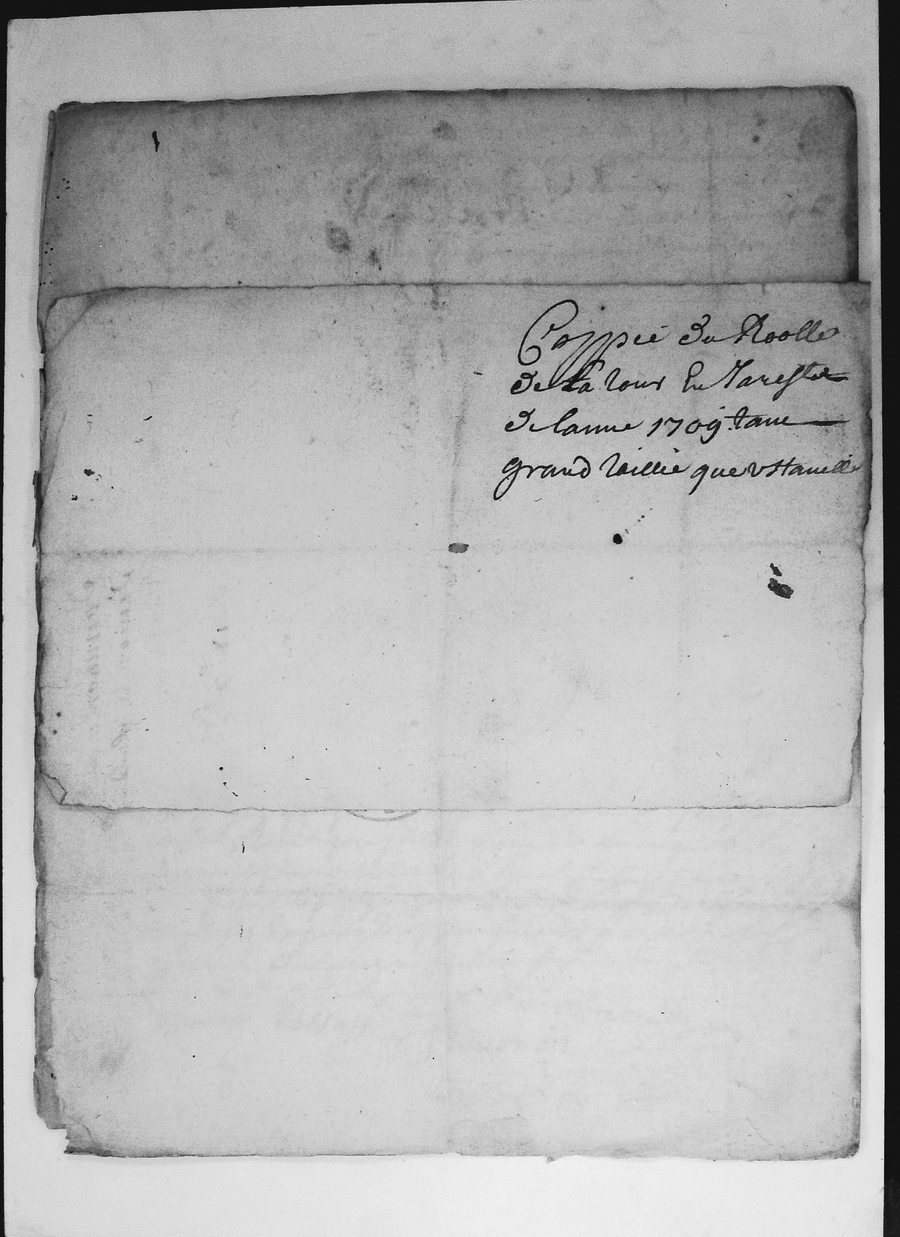 Coppie du Roolle
de La tour En Jareste
de lanne 1709 tant
grand taillie que Ustancille